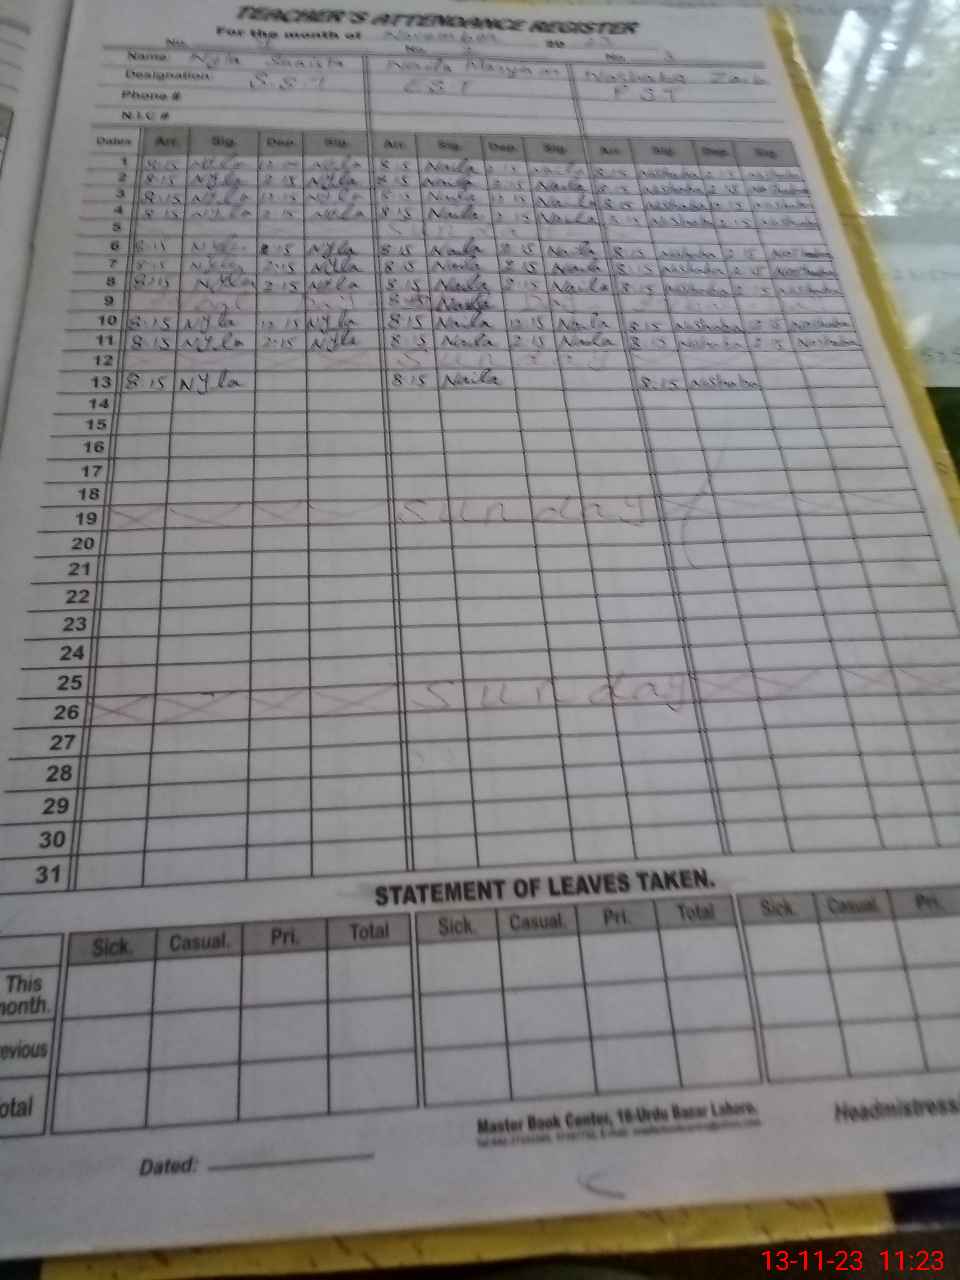 TEACHER'S ATTENDANCE REGISTER
For the month of November 20 23
No. No. 2 No. 3
Name Nyla Naila Maryam Nashaba Zaib
Designation S.S.T EST PST
Phone #
N.I.C #
Dates Arr. Sig. Dep. Sig. Arr. Sig. Dep. Sig. Arr. Sig. Dep. Sig.
1 8:15 Nyla Nyla 8 15 Naila Naila 8 15 Nashaba 2 15 Nashaba
2 8:15 Nyla 2 15 Nyla 8 15 Naila 2 15 Naila 8 15 Nashaba 2 15 Nashaba
3 8:15 Nyla Nyla 8 15 Naila 2 15 Naila 8 15 Nashaba 2 15 Nashaba
4 8 15 Nyla 2 15 Nyla 8 15 Naila 2 15 Naila Nashaba 2 15 Nashaba
5 Sunday
6 8:15 Nyla 2:15 Nyla 8:15 Naila 2 15 Naila 8 15 Nashaba 2 15 Nashaba
7 8:15 Nyla 2:15 Nyla 8 15 Naila 2 15 Naila 8 15 Nashaba 2 15 Nashaba
8 8:15 Nyla 2:15 Nyla 8 15 Naila 2:15 Naila 8 15 Nashaba 2 15 Nashaba
9 Naila Day
10 8:15 Nyla Nyla 8 15 Naila Naila 8 15 Nashaba 2 15 Nashaba
11 8:15 Nyla 2:15 Nyla 8 15 Naila 2 15 Naila 8 15 Nashaba 2 15 Nashaba
12 Sunday
13 8 15 Nyla 8 15 Naila 8 15 Nashaba
14
15
16
17
18
19 Sunday
20
21
22
23
24
25
26 Sunday
27
28
29
30
31
STATEMENT OF LEAVES TAKEN.
Sick. Casual. Pri. Total Sick. Casual. Pri. Total Sick. Casual. Pri.
This
month.
evious
otal
Master Book Center, 16-Urdu Bazar Lahore.
Headmistress
Dated:
13-11-23 11:23